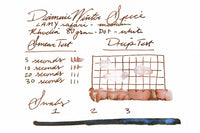 Diamine Winter Spice
LAMY safari - medium
Rhodia 80 gram - DOT - white
Smear Test Drip Test
5 seconds
10 seconds
20 seconds
30 seconds
Swabs
1 2 3